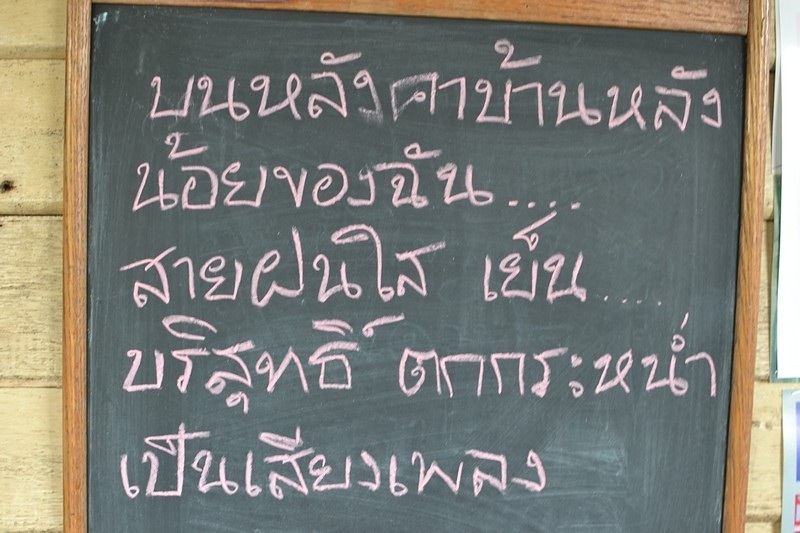 บนหลังคาบ้านหลัง
น้อยของฉัน....
สายฝนใส เย็น.....
บริสุทธิ์ ตกกระหน่ำ
เป็นเสียงเพลง